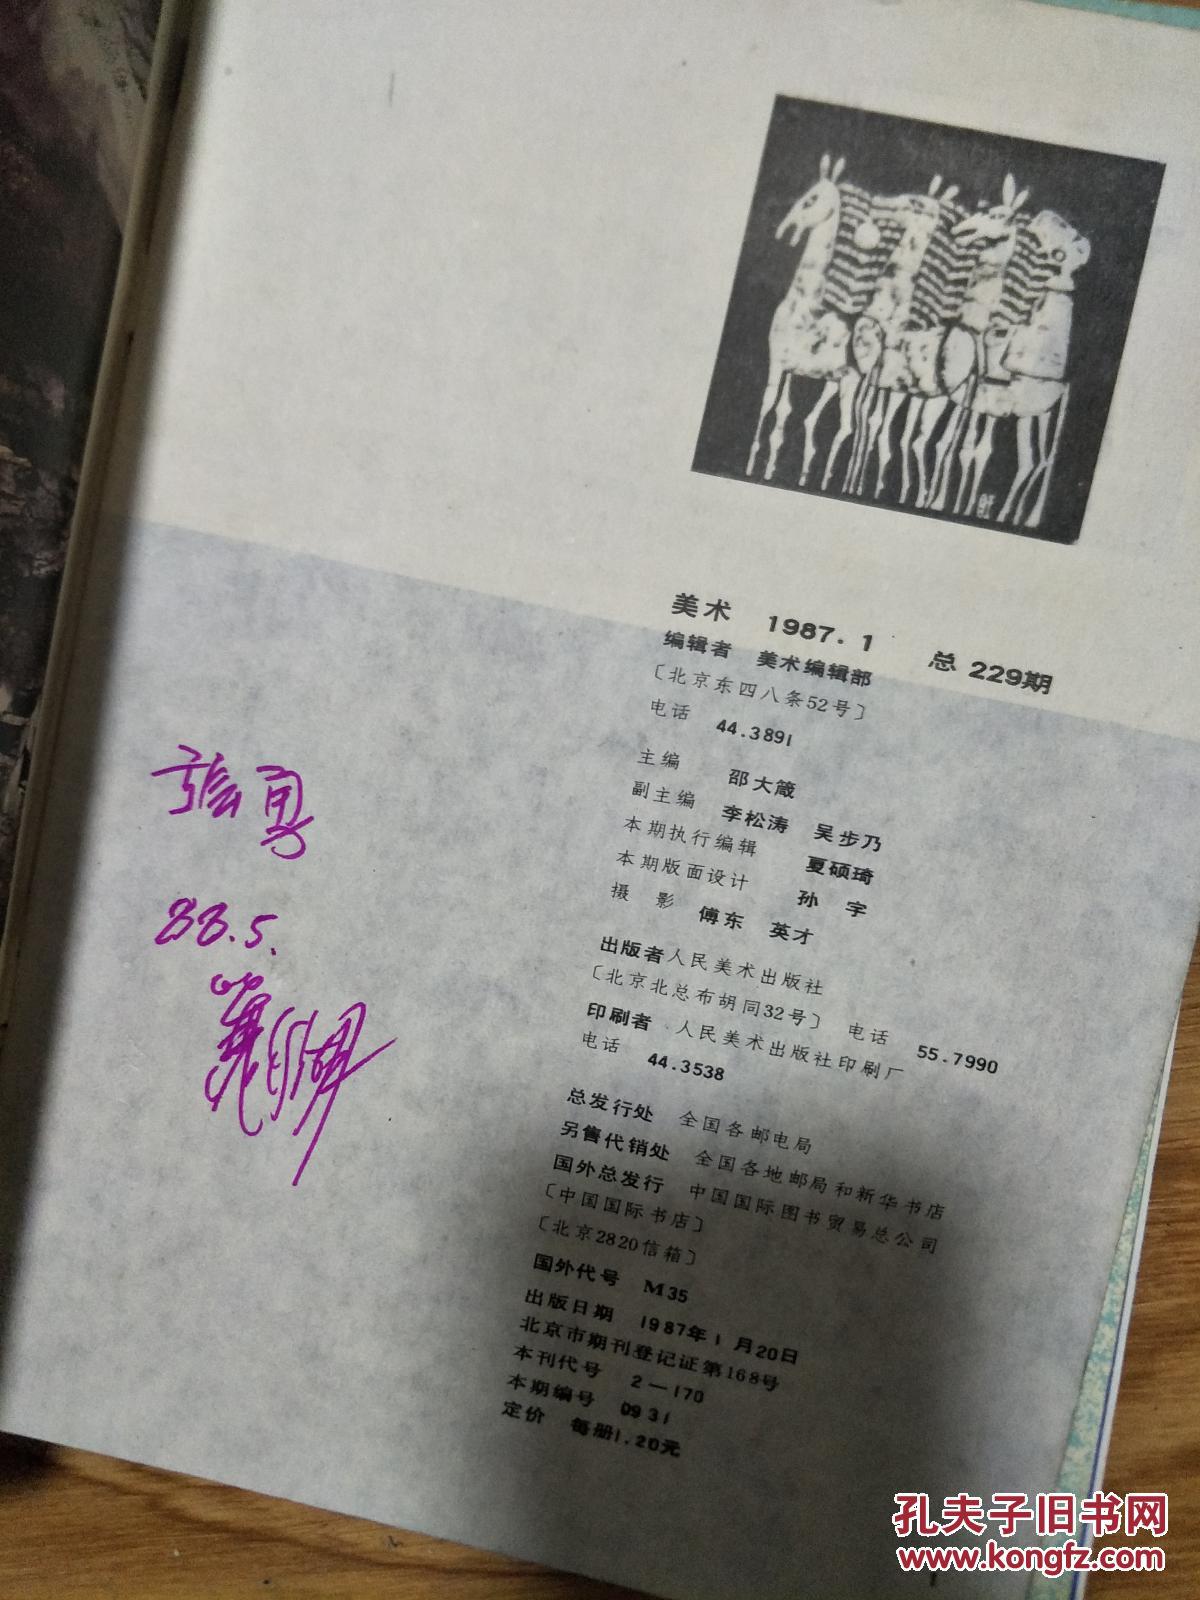 美术 1987.1 总 229期
编辑者 美术编辑部
〔北京东四八条52号〕
电话 44.3891
主编 邵大箴
副主编 李松涛 吴步乃
本期执行编辑 夏硕琦
本期版面设计 孙宇
摄影 傅东 英才
出版者 人民美术出版社
〔北京北总布胡同32号〕 电话 55.7990
印刷者 人民美术出版社印刷厂
电话 44.3538
总发行处 全国各邮电局
另售代销处 全国各地邮局和新华书店
国外总发行 中国国际图书贸易总公司
〔中国国际书店〕
〔北京2820信箱〕
国外代号 M35
出版日期 1987年1月20日
北京市期刊登记证第168号
本刊代号 2—170
本期编号 0931
定价 每册1.20元
张勇
88.5.
孔夫子旧书网
www.kongfz.com